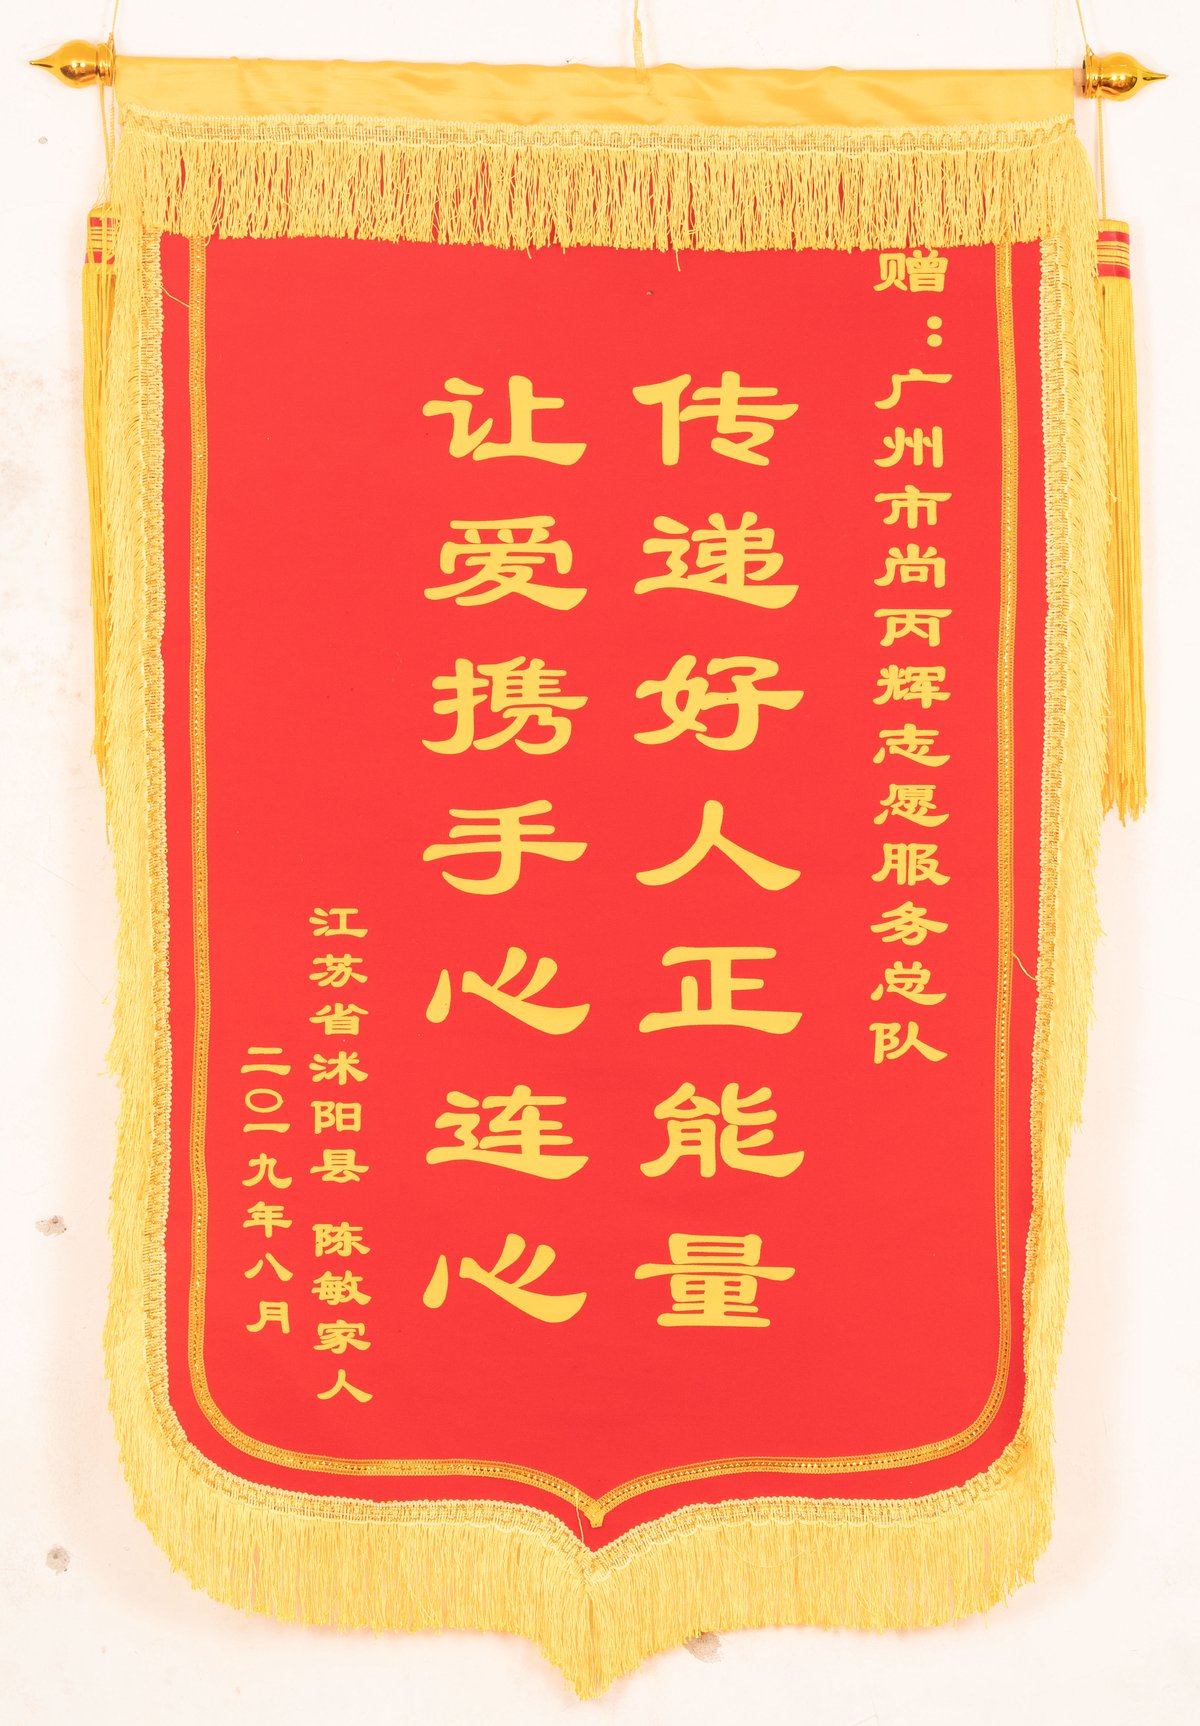 赠：广州市尚丙辉志愿服务总队
传递好人正能量
让爱携手心连心
江苏省沭阳县 陈敏家人
二〇一九年八月